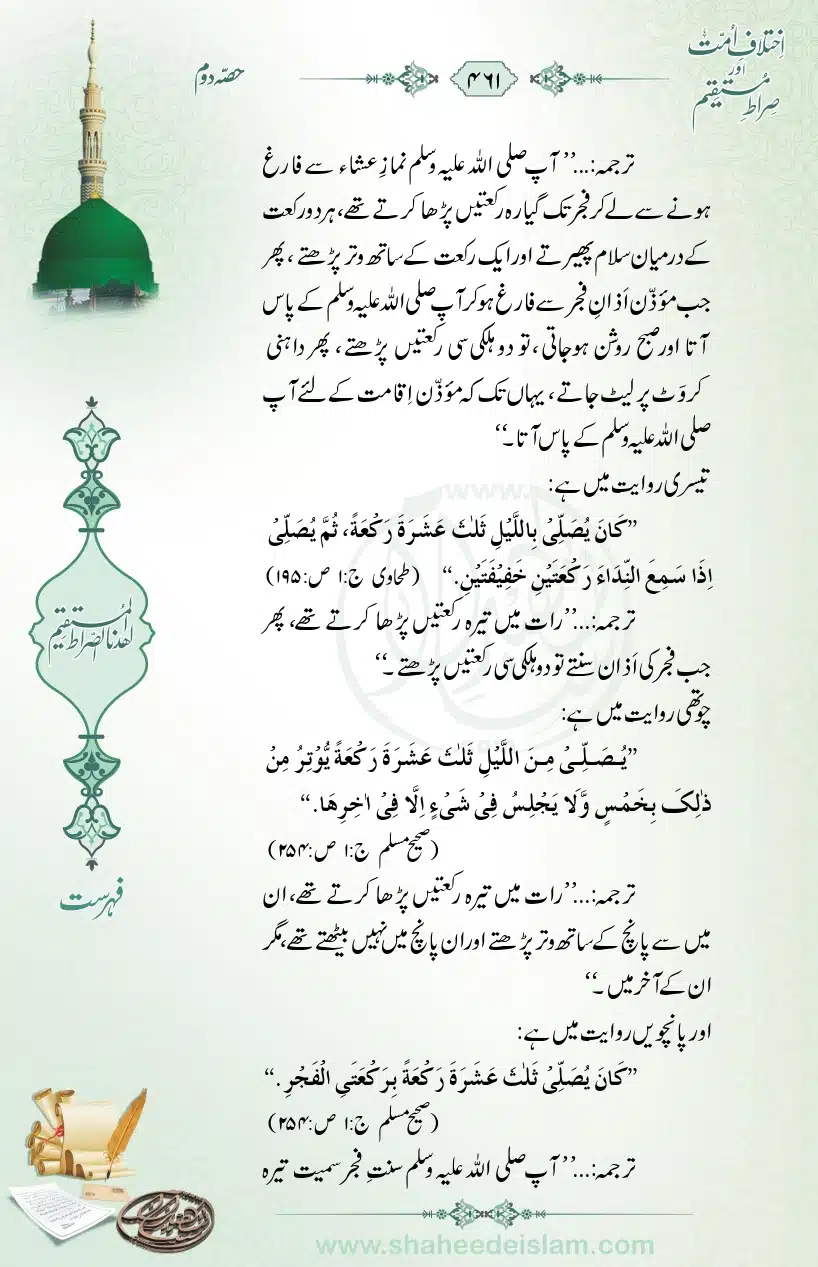 اِختلافِ اُمّت
اور
صراطِ مستقیم
۴۶۱
حصّہ دوم
ترجمہ:...’’آپ صلی اللہ علیہ وسلم نمازِ عشاء سے فارغ
ہونے سے لے کر فجر تک گیارہ رکعتیں پڑھا کرتے تھے، ہر دو رکعت
کے درمیان سلام پھیرتے اور ایک رکعت کے ساتھ وتر پڑھتے، پھر
جب مؤذّن اَذانِ فجر سے فارغ ہوکر آپ صلی اللہ علیہ وسلم کے پاس
آتا اور صبح روشن ہوجاتی، تو دو ہلکی سی رکعتیں پڑھتے، پھر داہنی
کروَٹ پر لیٹ جاتے، یہاں تک کہ مؤذّن اِقامت کے لئے آپ
صلی اللہ علیہ وسلم کے پاس آتا۔‘‘
تیسری روایت میں ہے:
’’کَانَ یُصَلِّیْ بِاللَّیْلِ ثَلٰثَ عَشَرَۃَ رَکْعَۃً، ثُمَّ یُصَلِّیْ
اِذَا سَمِعَ النِّدَاءَ رَکْعَتَیْنِ خَفِیْفَتَیْنِ.‘‘ (طحاوی ج:۱ ص:۱۹۵)
ترجمہ:...’’رات میں تیرہ رکعتیں پڑھا کرتے تھے، پھر
جب فجر کی اَذان سنتے تو دو ہلکی سی رکعتیں پڑھتے۔‘‘
چوتھی روایت میں ہے:
’’یُصَلِّیْ مِنَ اللَّیْلِ ثَلٰثَ عَشَرَۃَ رَکْعَۃً یُّوْتِرُ مِنْ
ذٰلِکَ بِخَمْسٍ وَّلَا یَجْلِسُ فِیْ شَیْءٍ اِلَّا فِیْ اٰخِرِھَا.‘‘
(صحیح مسلم ج:۱ ص:۲۵۴)
ترجمہ:...’’رات میں تیرہ رکعتیں پڑھا کرتے تھے، ان
میں سے پانچ کے ساتھ وتر پڑھتے اور ان پانچ میں نہیں بیٹھتے تھے، مگر
ان کے آخر میں۔‘‘
اور پانچویں روایت میں ہے:
’’کَانَ یُصَلِّیْ ثَلٰثَ عَشَرَۃَ رَکْعَۃً بِرَکْعَتَیِ الْفَجْرِ.‘‘
(صحیح مسلم ج:۱ ص:۲۵۴)
ترجمہ:...’’آپ صلی اللہ علیہ وسلم سنتِ فجر سمیت تیرہ
اهدنا الصراط المستقیم
فہرست
www.shaheedeislam.com